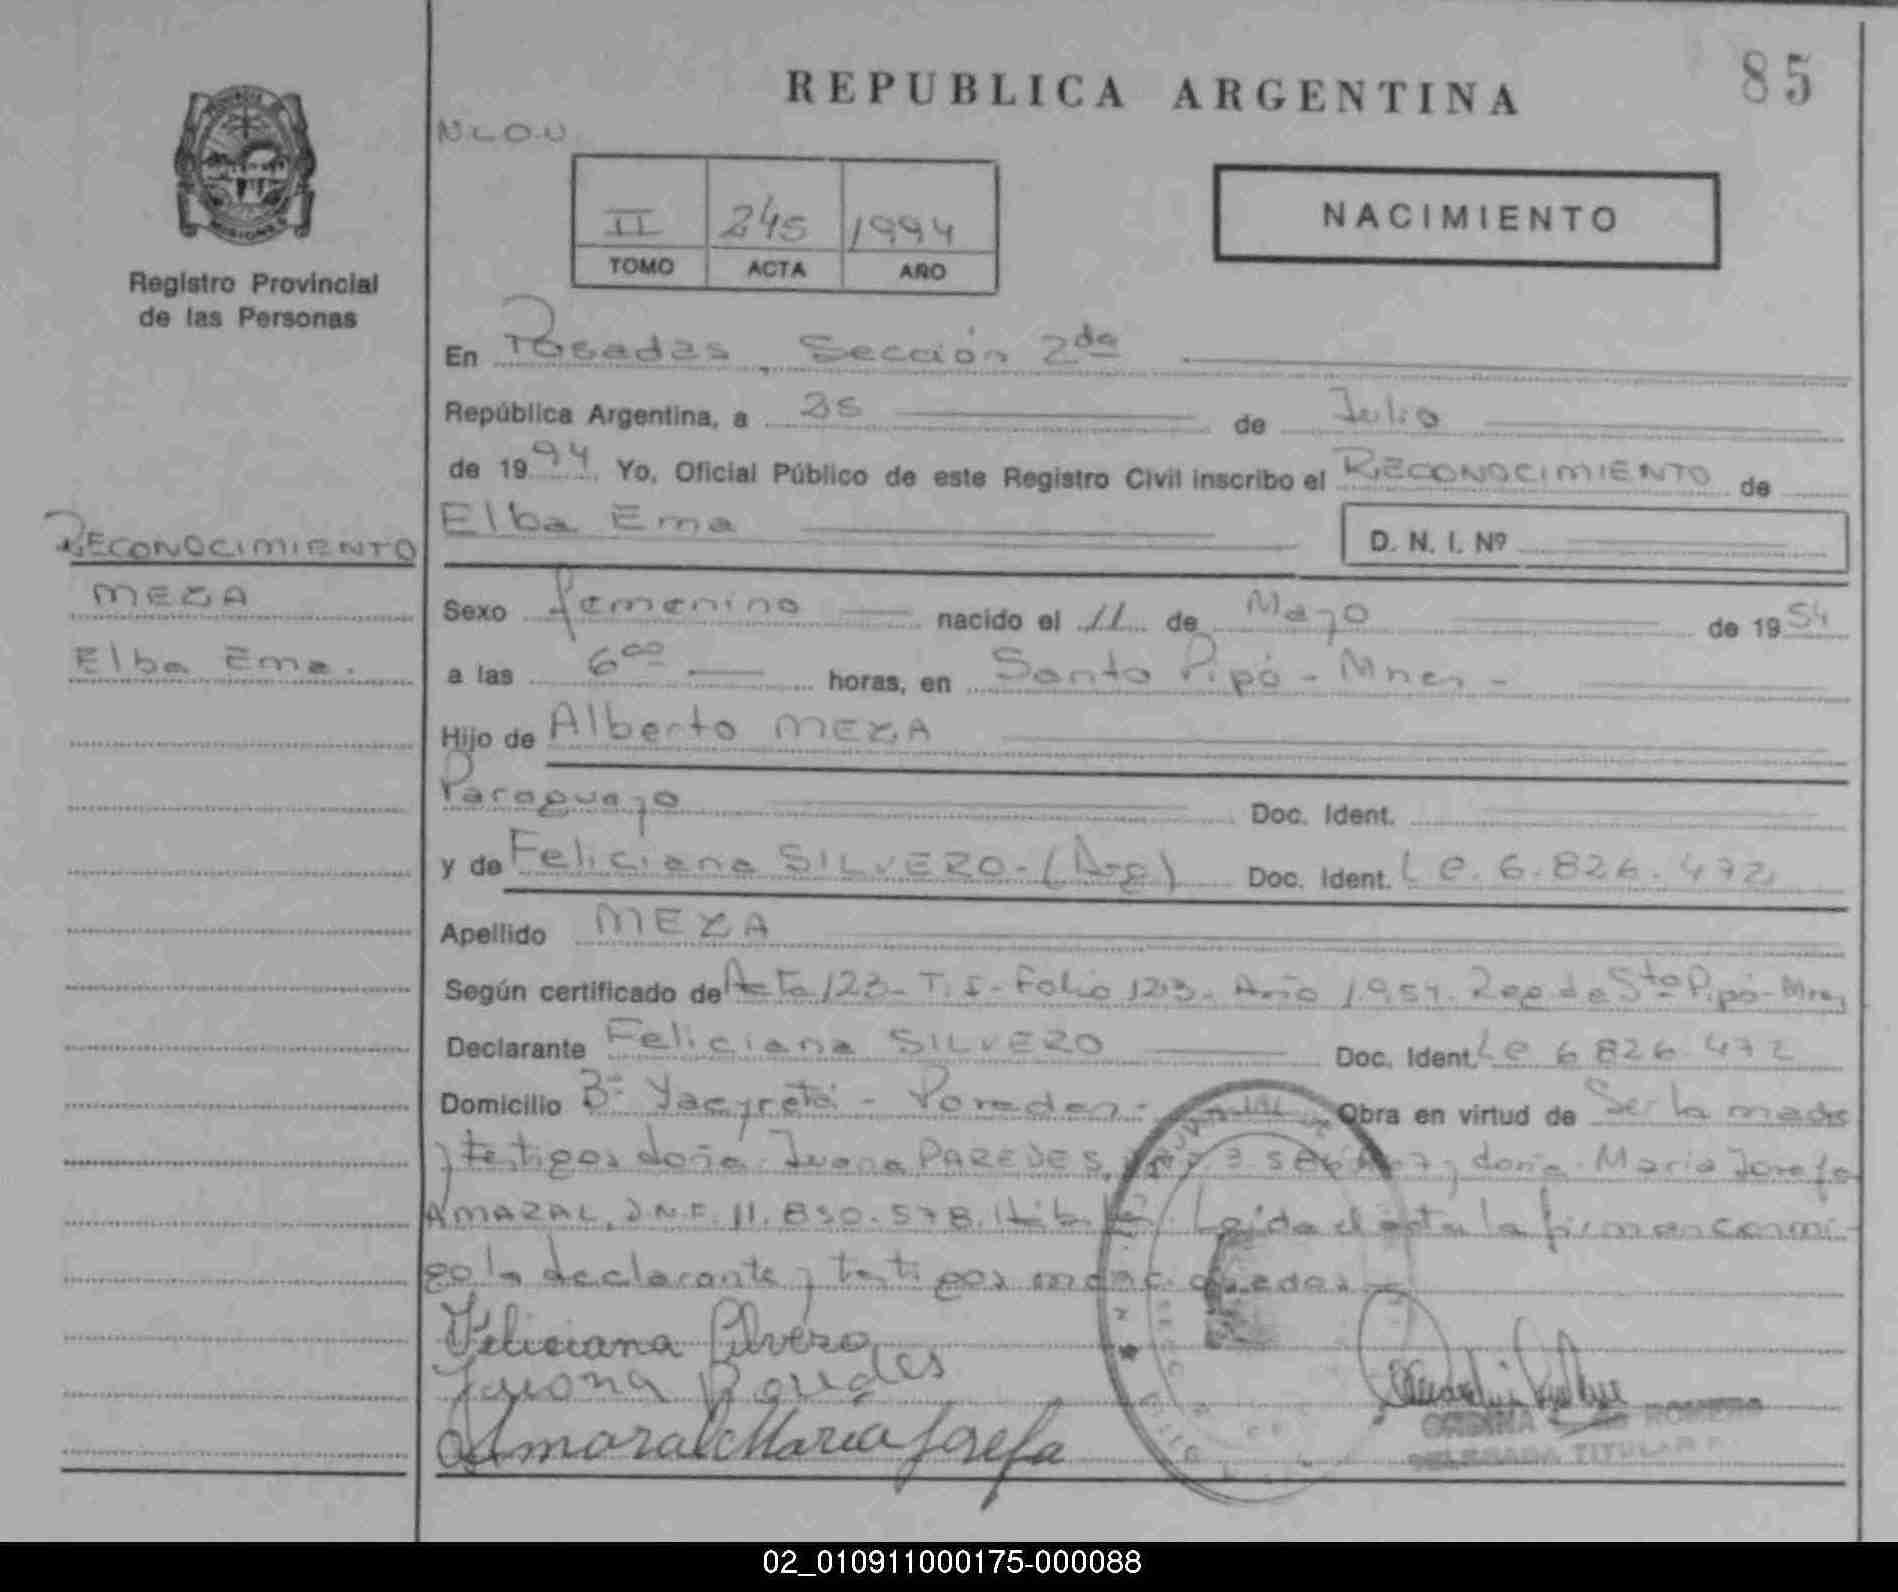 REPUBLICA ARGENTINA
85
Registro Provincial
de las Personas
II 245 1994
TOMO ACTA AÑO
NACIMIENTO
En Posadas, Sección 2da
República Argentina, a 25 de Julio
de 1994. Yo, Oficial Público de este Registro Civil inscribo el RECONOCIMIENTO de
Elba Ema D. N. I. Nº
RECONOCIMIENTO
MEZA
Elba Ema.
Sexo femenino nacido el 11 de Mayo de 1954
a las 6 00 horas, en Santo Pipó - Mnes -
Hijo de Alberto MEZA
Paraguayo Doc. Ident.
y de Feliciana SILVERO - (Arg) Doc. Ident. LC. 6.826.472
Apellido MEZA
Según certificado de Acta 123 - T. I - Folio 123 - Año 1954. Reg. de Sto Pipó - Mnes
Declarante Feliciana SILVERO Doc. Ident. LC 6 826 472
Domicilio Bº Yacyretá - Posadas - Obra en virtud de Ser la madre
y testigos doña Juana PAREDES, y doña María Josefa
AMARAL, D.N.I. 11.830.578. Leída el acta la firman conmi-
go la declarante y testigos
Feliciana Silvero
Juana Paredes
Amaral Maria Josefa
ROMERO
DELEGADA TITULAR
02_010911000175-000088